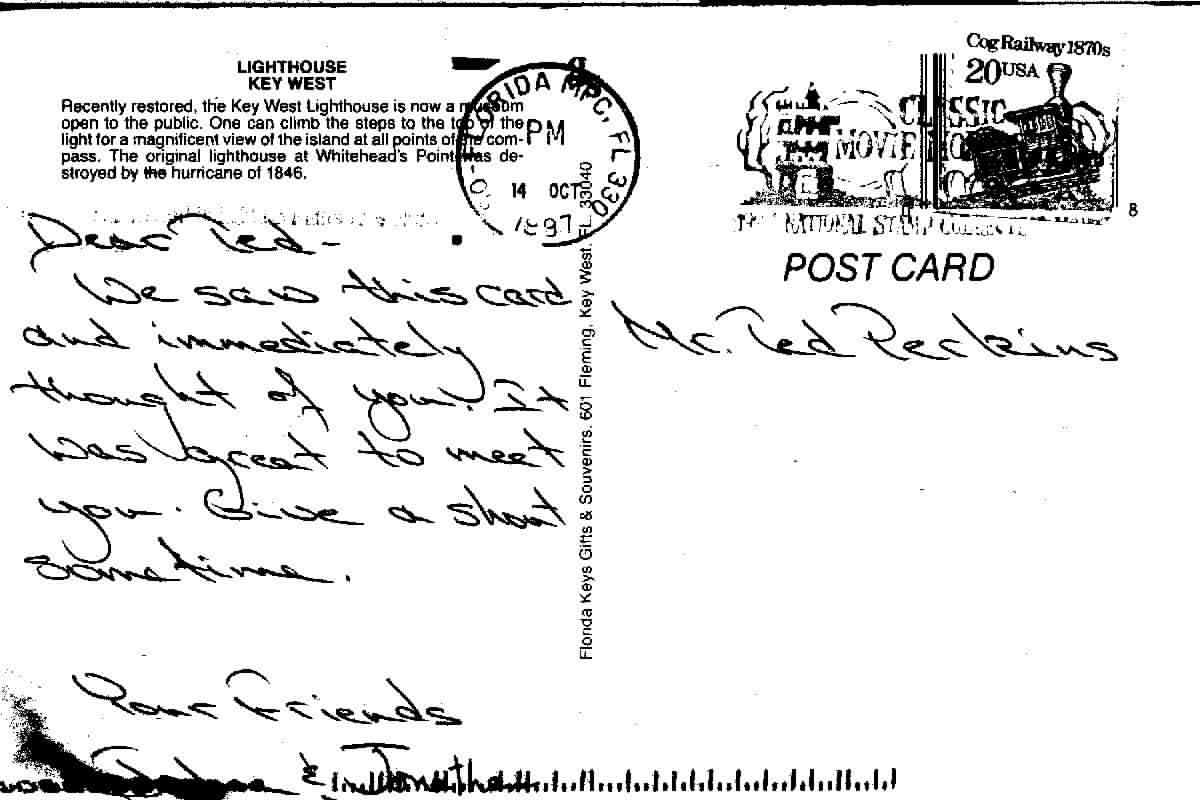 LIGHTHOUSE
KEY WEST
Recently restored, the Key West Lighthouse is now a museum
open to the public. One can climb the steps to the top of the
light for a magnificent view of the island at all points of the com-
pass. The original lighthouse at Whitehead's Point was de-
stroyed by the hurricane of 1846.
Dear Ted-
We saw this card
and immediately
thought of you. It
was great to meet
you. Give a shout
sometime.
Your Friends
& Jonathan
Florida Keys Gifts & Souvenirs, 601 Fleming, Key West, FL 33040
FLORIDA MPC, FL 330
PM
14 OCT
1997
Cog Railway 1870s
20 USA
CLASSIC
MOVIE
NATIONAL STAMP
8
POST CARD
Mr. Ted Perkins